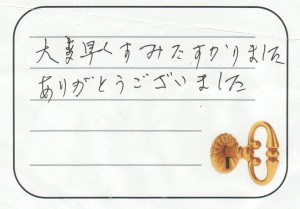 大変早くすみたすかりました
ありがとうございました